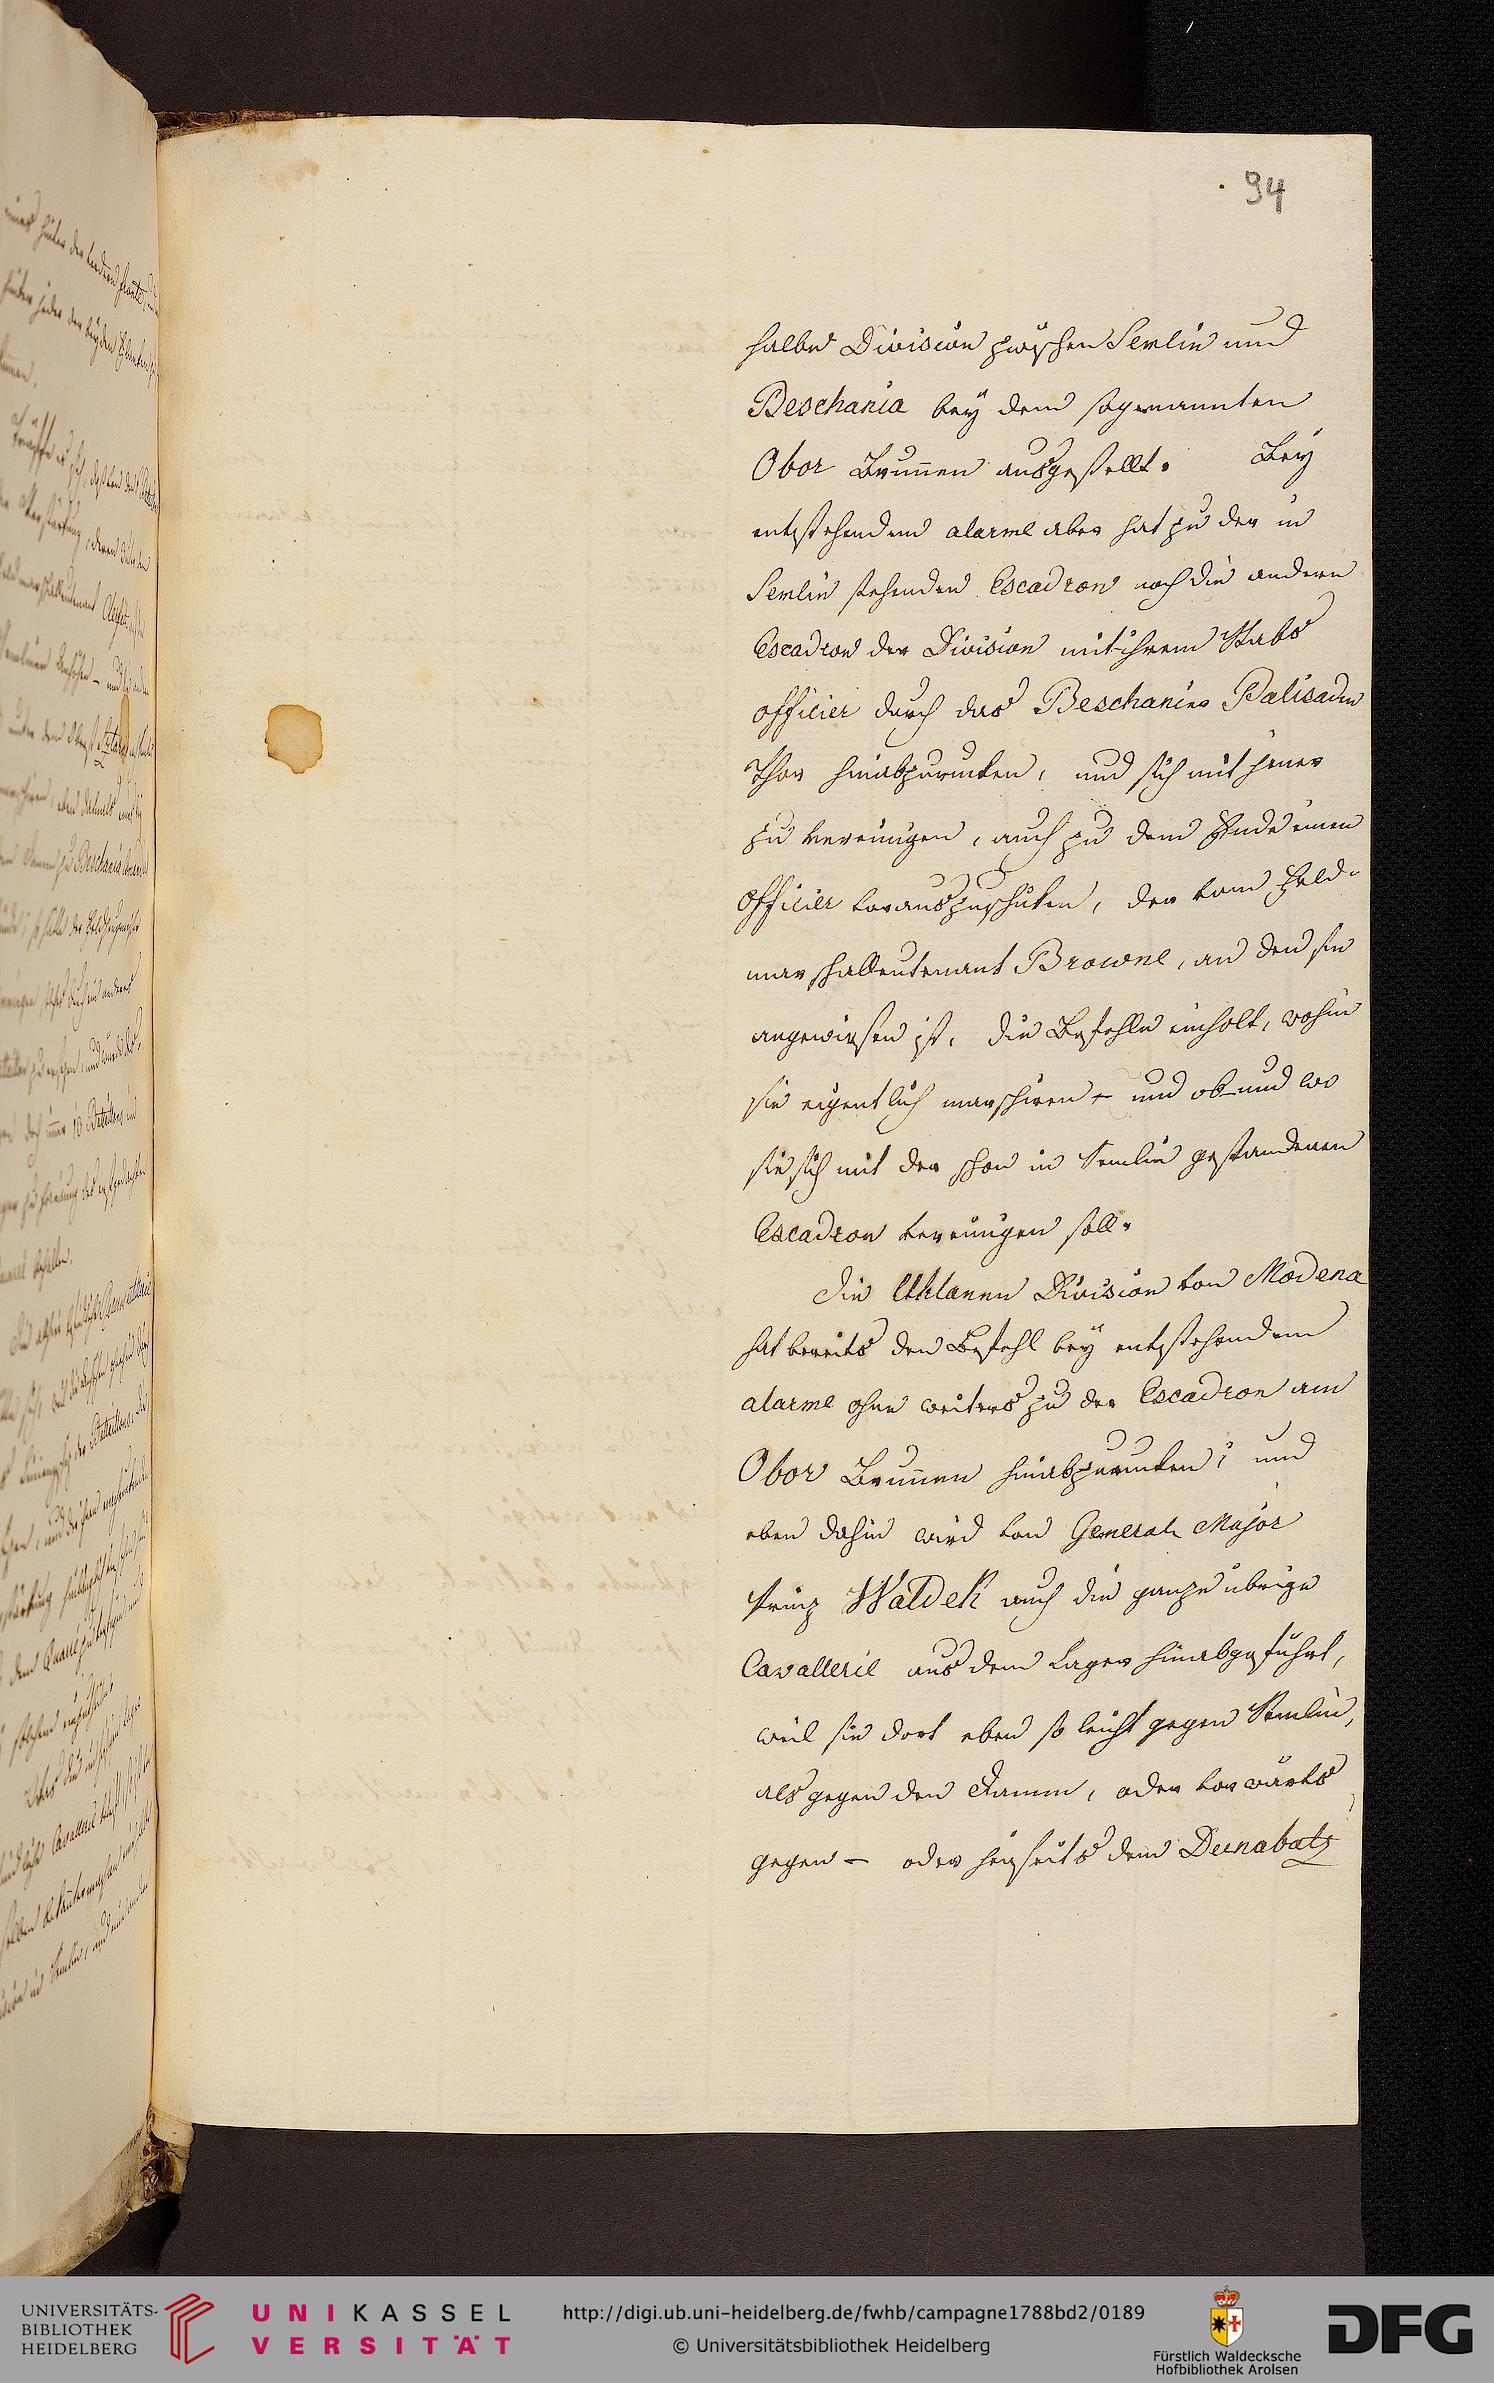 94
halbe Division zwischen Semlin und
Beschania beÿ dem sogenannten
Obor Brunnen ausgestellt. Beÿ
entstehendem alarme aber hat zu der in
Semlin stehenden Escadron noch die andere
Escadron der Division mit ihrem Stabs
officier durch das Beschanier Palisaden
Thor hinabzurucken, und sich mit jener
zu vereinigen, auch zu dem Ende einen
officier vorauszuschicken, der vom Feld-
marschalleutenant Browne, an den sie
angewiesen ist, die Befehle einholt, wohin
sie eigentlich marschiren – und ob – und wo
sie sich mit der schon in Semlin gestandenen
Escadron vereinigen soll.
Die Uhlanen Division von Modena
hat bereits den Befehl beÿ entstehendem
alarme ohne weiters zu der Escadron am
Obor Brunnen hinabzurucken; und
eben dahin wird vom General Major
Prinz Waldek auch die ganze übrige
Cavallerie aus dem Lager hinabgeführt,
weil sie dort eben so leicht gegen Semlin,
als gegen den Damm, oder vorwärts
gegen – oder jenseits dem Dunabatz
UNIVERSITÄTS-
BIBLIOTHEK
HEIDELBERG
UNIKASSEL
VERSITÄT
http://digi.ub.uni-heidelberg.de/fwhb/campagne1788bd2/0189
© Universitätsbibliothek Heidelberg
Fürstlich Waldecksche
Hofbibliothek Arolsen
DFG